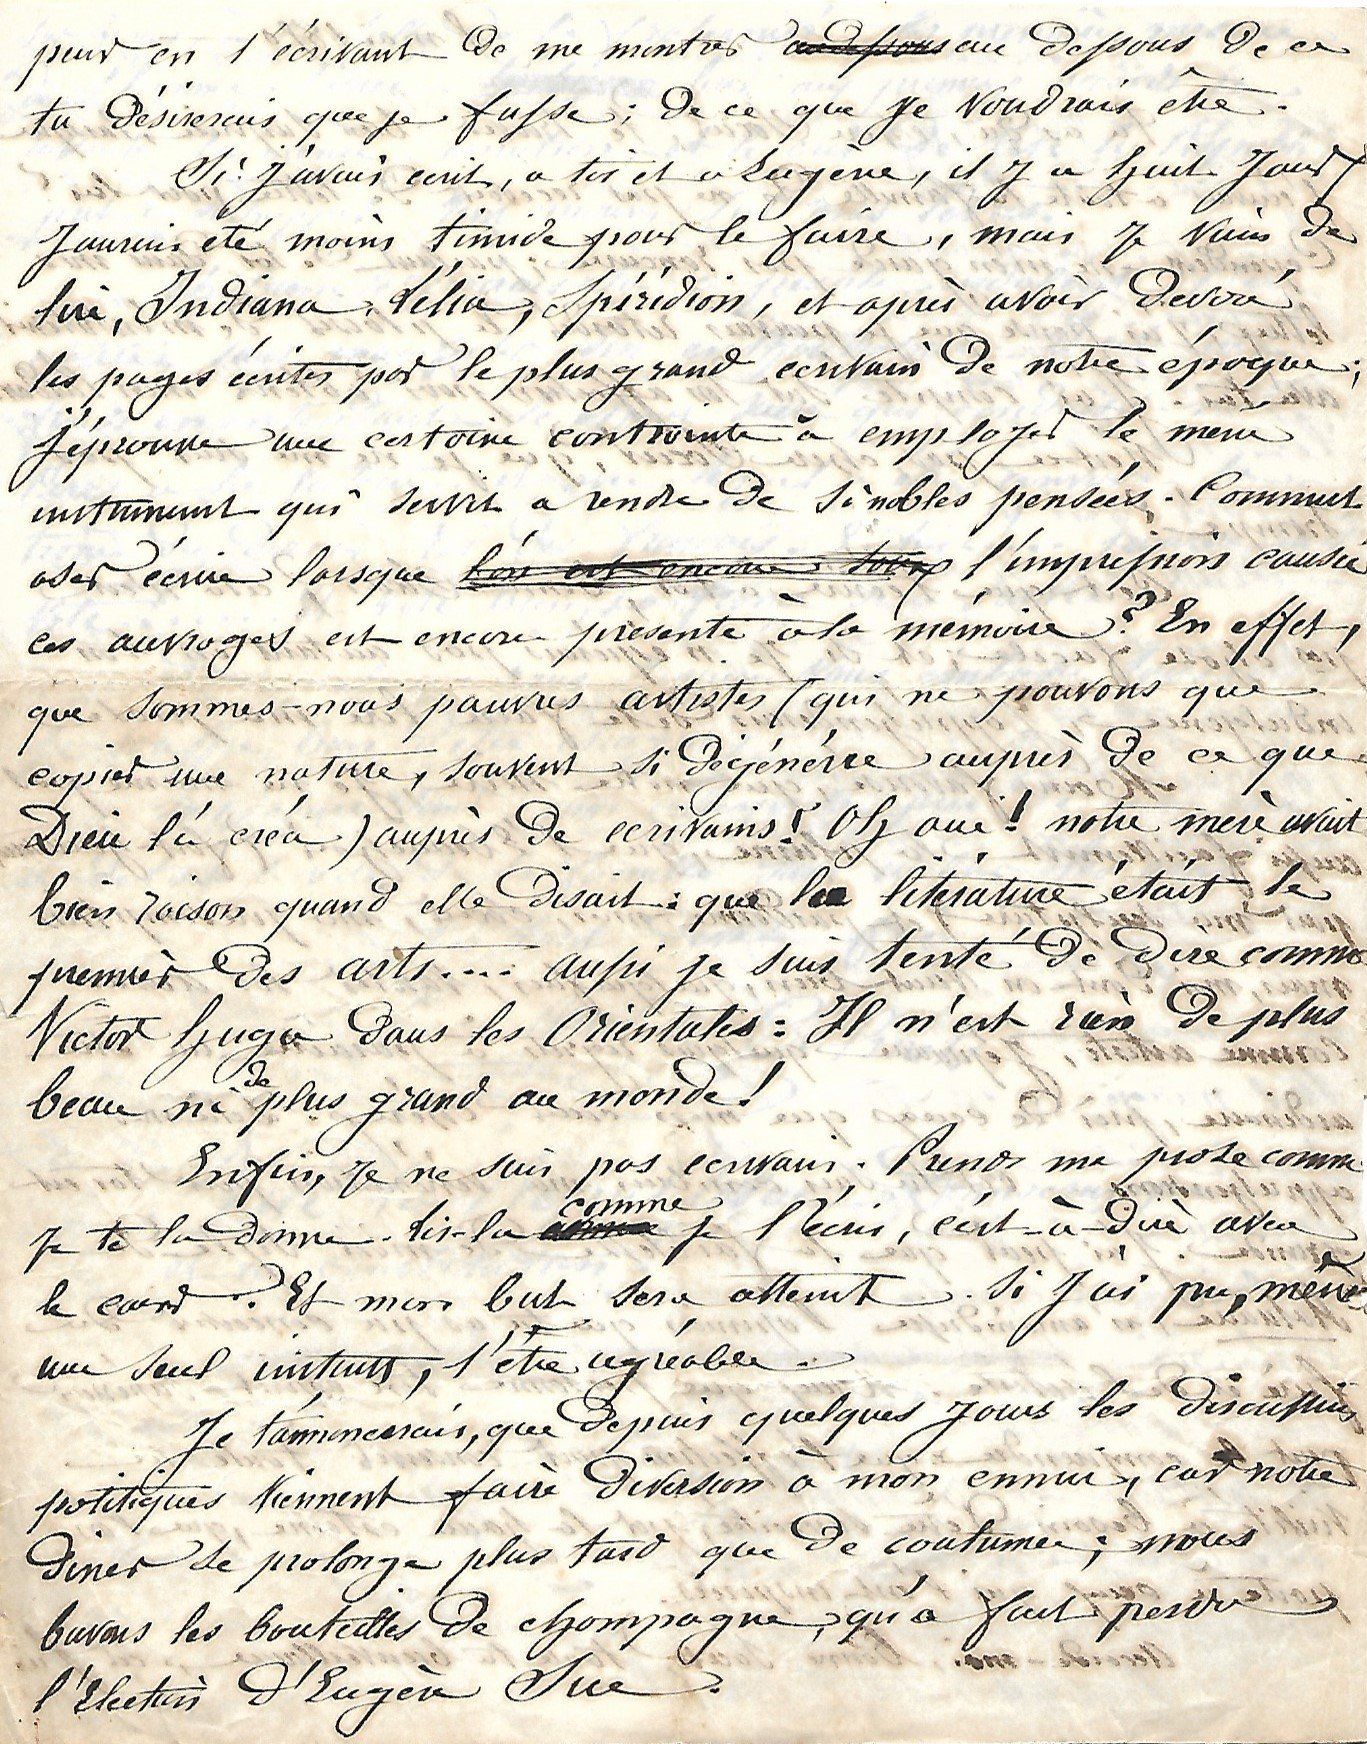 peur en t'écrivant de me montrer ~~au dessous~~ au dessous de ce
tu désirerais que je fusse ; de ce que je voudrais être.
Si j'avais ecrit, a toi et a Eugène, il y a huit jours
J'aurais eté moins timide pour le faire, mais je viens de
lire, Indiana, Lélia, Spiridion, et après avoir devoré
les pages écrites par le plus grand ecrivain de notre époque ;
j'éprouve une certaine contrainte à employer le même
instrument qui servit a rendre de si nobles pensées. Comment
oser écrire lorsque ~~l'on est encore sous~~ l'impression causée
ces ouvrages est encore presente à la mémoire ? En effet,
que sommes-nous pauvres artistes (qui ne pouvons que
copier une nature, souvent si dégénérée auprès de ce que
Dieu l'a créa) auprès de ecrivains ! Oh oui ! notre mère avait
bien raison quand elle disait : que la litérature était le
premier des arts.... aussi je suis tenté de dire comme
Victor hugo dans les Orientales : Il n'est rien de plus
beau ni de plus grand au monde !
Enfin, je ne suis pas ecrivain. Prends ma prose comme
je te la donne. Lis-la ~~comme~~ comme je l'écris, c'est-à-dire avec
le cœur. Et mon but sera atteint si j'ai pu, même
un seul instant, t'être agréable.
Je t'annoncerais, que depuis quelques jours les discussions
politiques viennent faire diversion à mon ennui, car notre
diner se prolonge plus tard que de coutume ; nous
buvons les bouteilles de champagne, qu'a fait perdre
l'Election d'Eugène Sue.